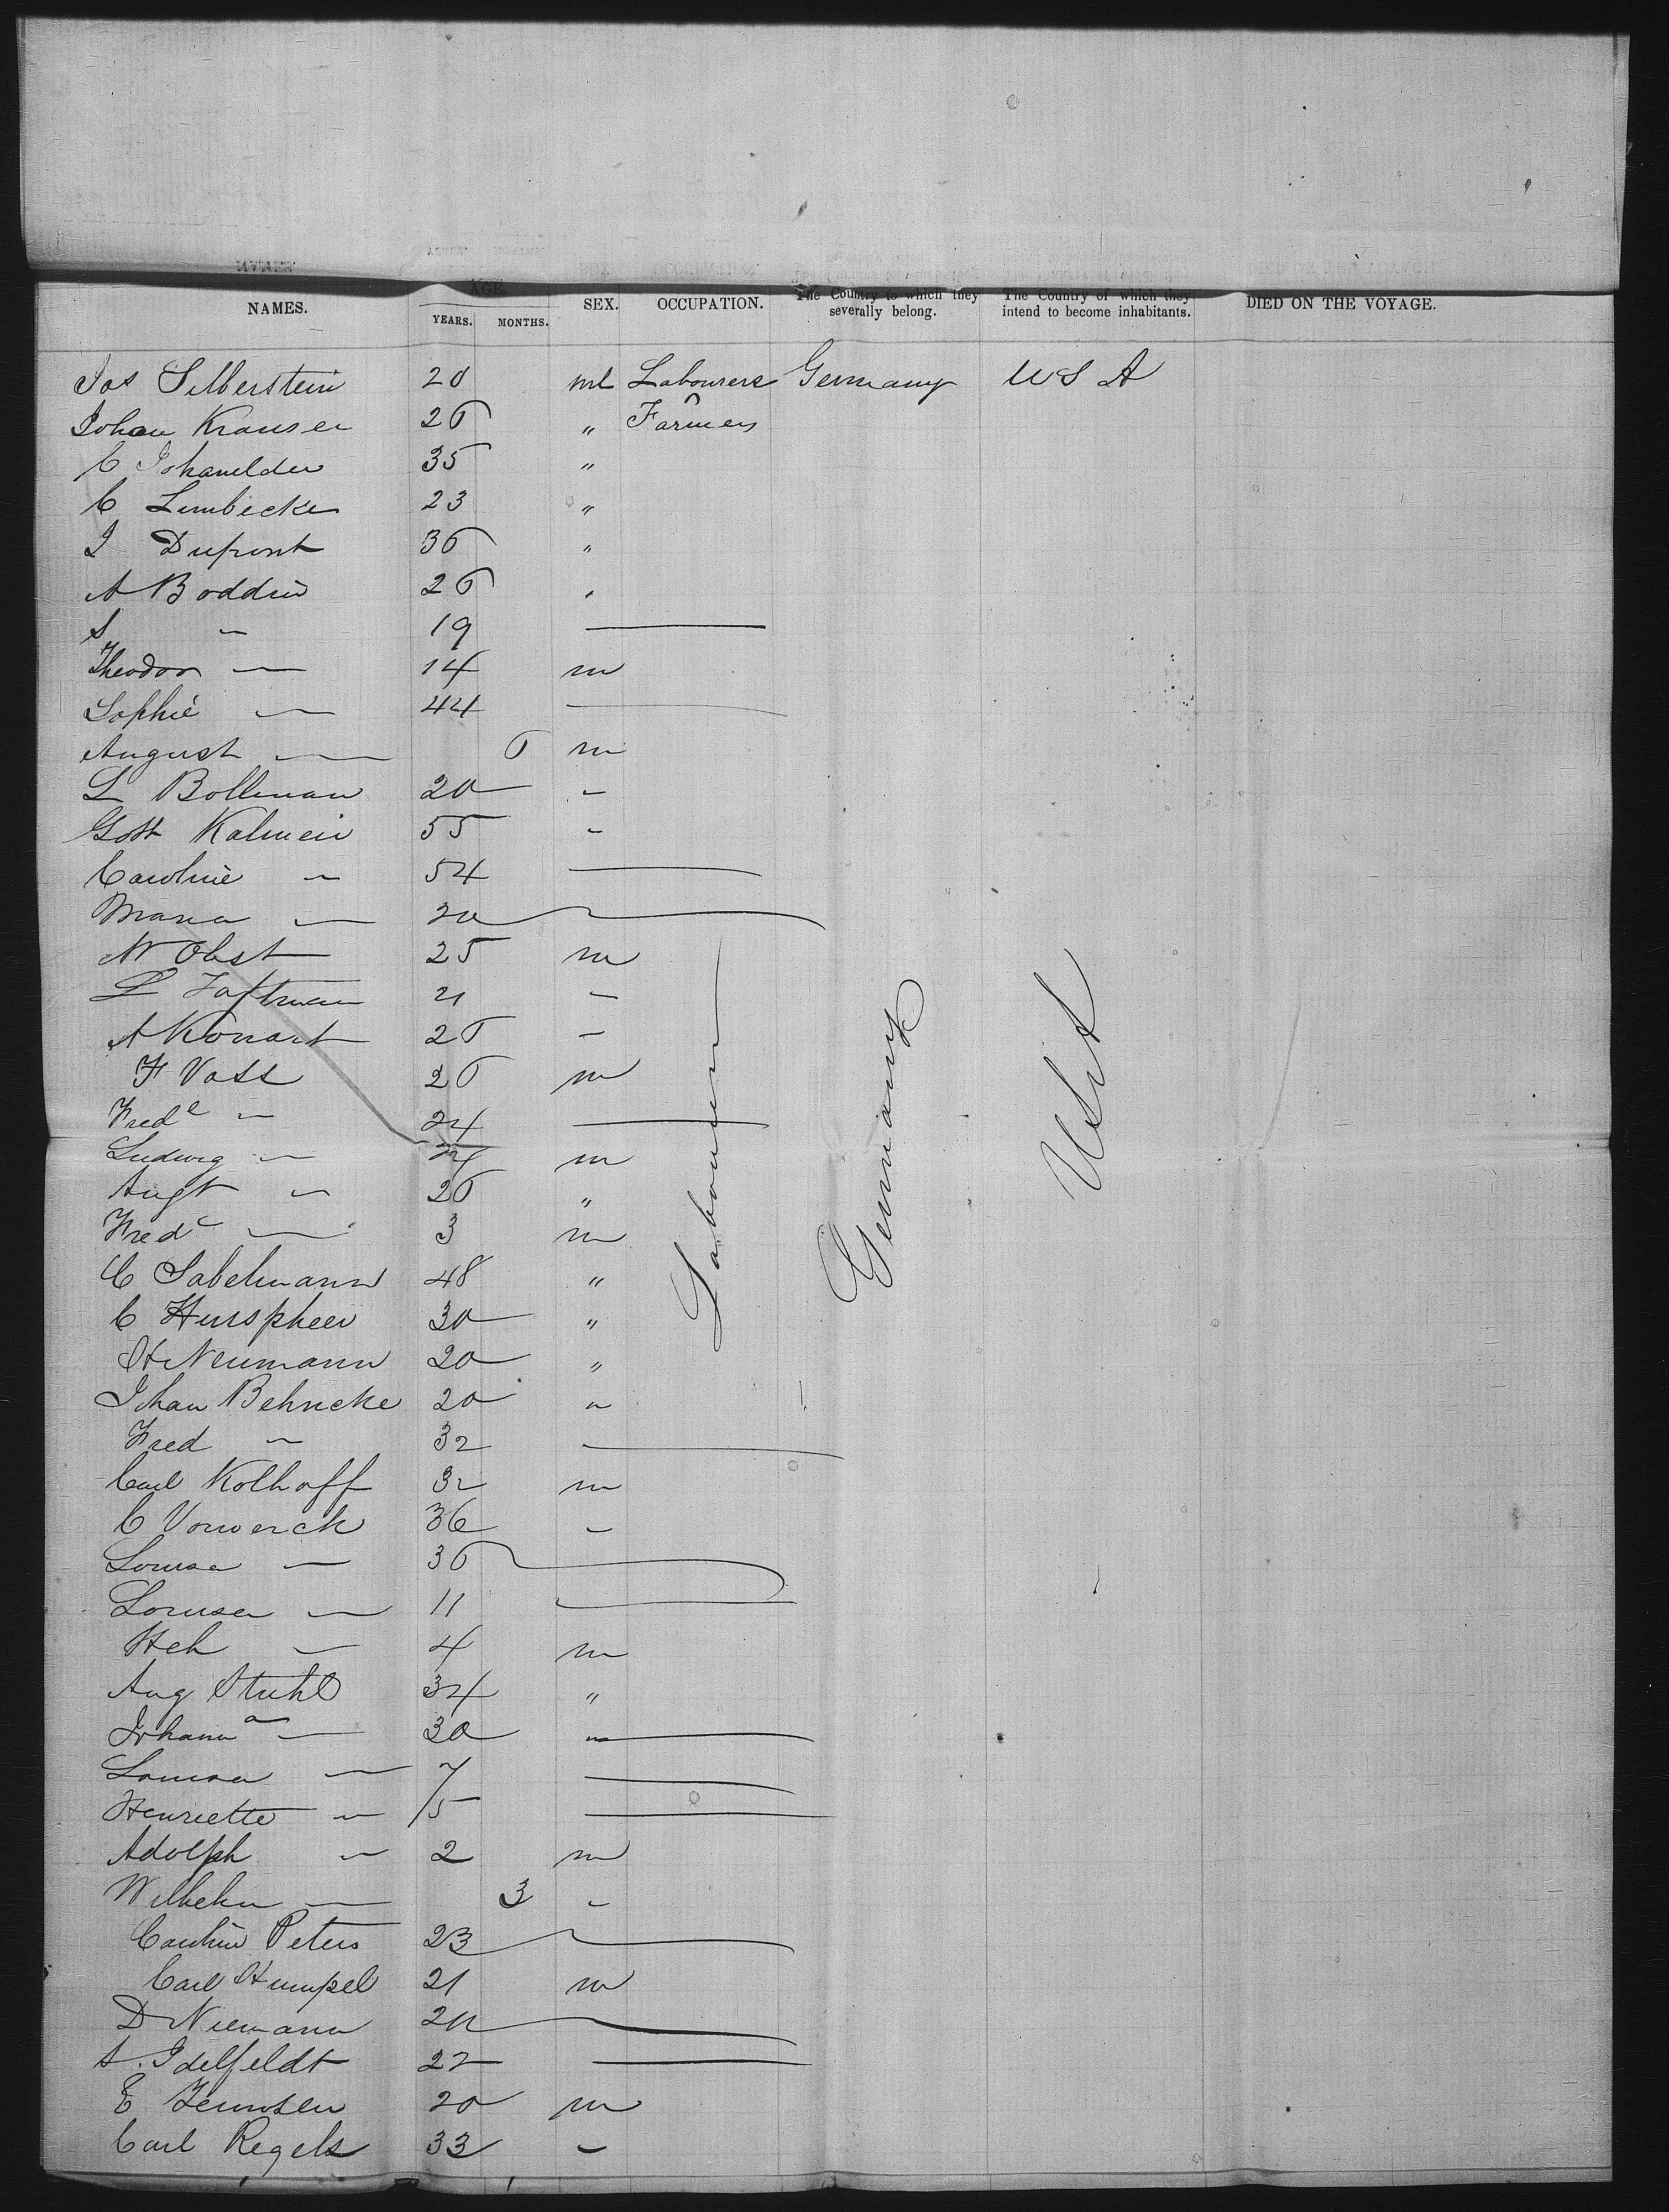 NAMES. AGE. YEARS. MONTHS. SEX. OCCUPATION. The Country to which they severally belong. The Country of which they intend to become inhabitants. DIED ON THE VOYAGE.
Jos Silberstein 20 ml Labourers Germany U S A
Johan Krauser 26 " Farmers
C 35 "
C Lembecke 23 "
J Dupont 36 "
A Boddin 26 "
S — 19 —
Theodor — 14 m
Sophie — 44 —
August — 6 m
L Bollman 20 "
Gott Kalmeir 55 "
Caroline — 54 —
Maria — 20 —
W Obst 25 m
L 21 —
A Konart 26 —
F Voss 26 m
Fred e — 24 —
Ludwig — m
Augt — 26 "
Fred c — 3 m
C Sabelmann 48 "
C 30 "
H Neumann 20 "
Johan Behncke 20 "
Fred — 32 —
Carl Kolhoff 32 m
C Vorwerck 36 —
Louisa — 36 —
Louisa — 11 —
Hch — 4 m
Aug Stuhl 34 "
Johanna — 30 —
Louisa — 7 —
Henriette — 5 —
Adolph — 2 m
Wilhelm — 3 "
Caroline Peters 23 —
Carl Humpel 21 m
D Niemann —
A. Idelfeldt 22 —
E 20 m
Carl Regels 33 "
Labourers
Germany
U S A